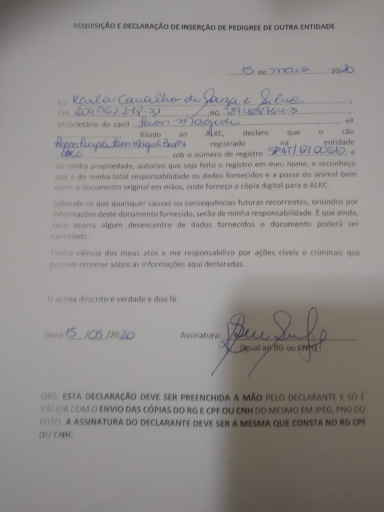 REQUISIÇÃO E DECLARAÇÃO DE INSERÇÃO DE PEDIGREE DE OUTRA ENTIDADE
15 de maio 2020
Eu Karla Carvalho de Souza e Silva,
CPF RG
proprietário do canil nº
filiado ao ALKC, declaro que o cão
registrado na entidade
sob o número de registro e
de minha propriedade, autorizo que seja feito o registro em meu nome, e reconheço
que é de minha total responsabilidade os dados fornecidos e a posse do animal bem
como o documento original em mãos, onde forneço a cópia digital para o ALKC.
Sabendo-se que quaisquer causas ou consequências futuras recorrentes, oriundos por
informações deste documento fornecido, serão de minha responsabilidade. E que ainda,
caso ocorra algum desencontro de dados fornecidos o documento poderá ser
cancelado.
Tenho ciência dos meus atos e me responsabilizo por ações cíveis e criminais que
possam recorrer sobre as informações aqui declaradas.
O acima descrito é verdade e dou fé
Data: 15 /05 /2020 Assinatura:
(Igual ao RG ou CNH)
OBS: ESTA DECLARAÇÃO DEVE SER PREENCHIDA A MÃO PELO DECLARANTE E SÓ É
VÁLIDA COM O ENVIO DAS CÓPIAS DO RG E CPF OU CNH DO MESMO EM JPEG, PNG OU
FOTO. A ASSINATURA DO DECLARANTE DEVE SER A MESMA QUE CONSTA NO RG CPF
OU CNH.